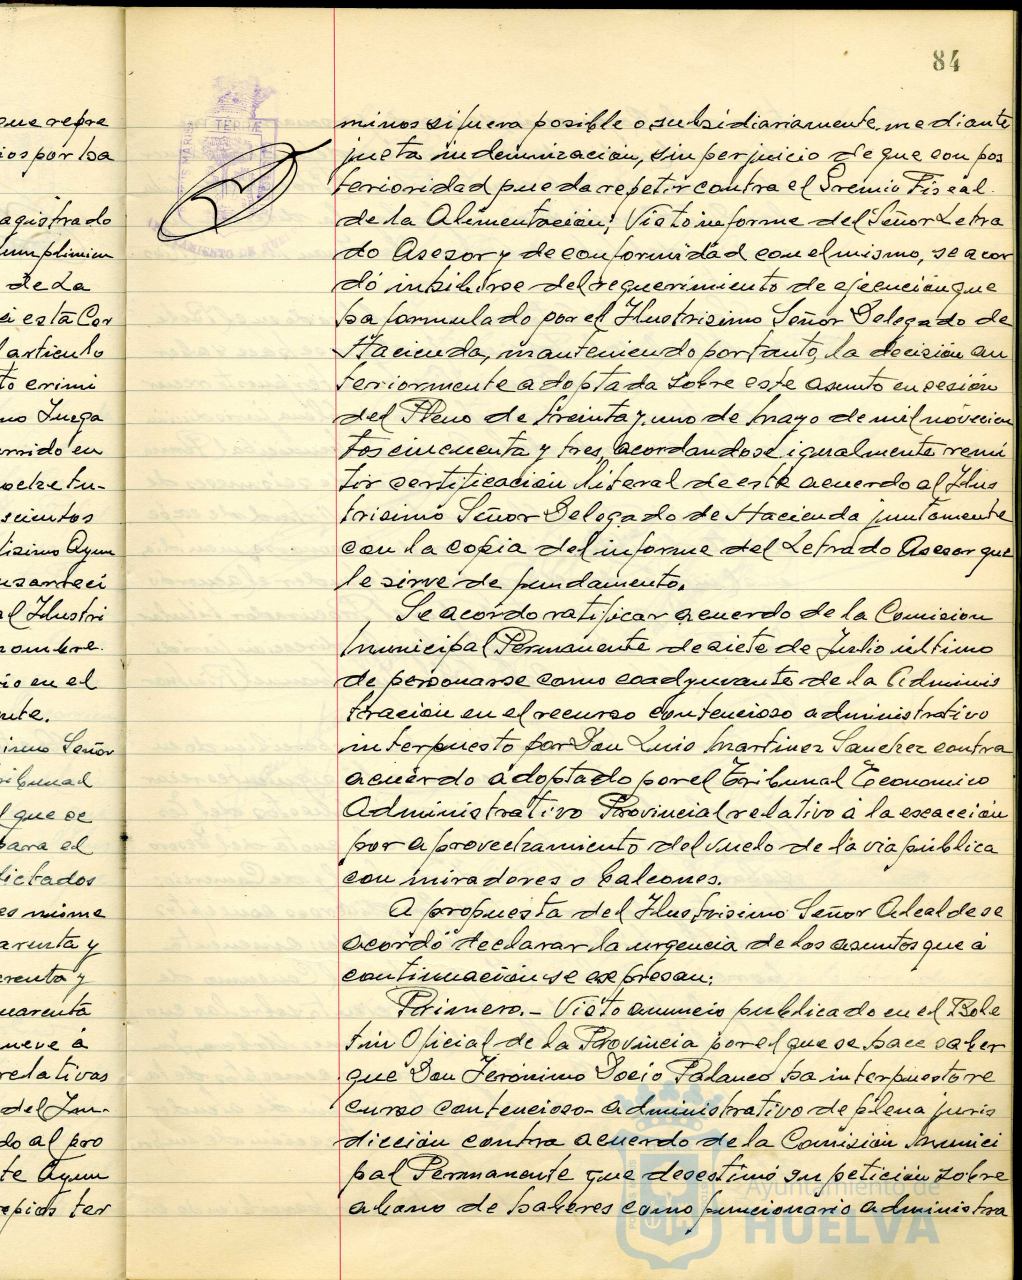 84
que repre
ios por la
agistrado
umplimien
de La
a esta Cor
l articulo
to crimi
no Juega
rrido en
oche tu-
scientos
lisimo Ayun
al Ilustri
nombre
io en el
nte.
simo Señor
ribunal
l que se
para el
dictados
es misma
arenta y
erenta y
uarenta
nueve á
relativas
del Im-
do al pro
te Ayun
opios ter
minos si fuera posible o subsidiariamente, mediante
justa indemnizacion, sin perjuicio de que con pos
terioridad pueda repetir contra el Gremio Fiscal
de la Alimentación; Visto informe del Señor Letra
do Asesor y de conformidad con el mismo, se acor
dó inhibirse del requerimiento de ejecución que
ha formulado por el Ilustrisimo Señor Delegado de
Hacienda, manteniendo por tanto, la decisión an
teriormente adoptada sobre este asunto en sesión
del Pleno de treinta y uno de Mayo de mil novecien
tos cincuenta y tres, acordandose igualmente remi
tir certificación literal de este acuerdo al Ilus
trisimo Señor Delegado de Hacienda juntamente
con la copia del informe del Letrado Asesor que
le sirve de fundamento.
Se acordo ratificar acuerdo de la Comision
Municipal Permanente de siete de Julio ultimo
de personarse como coadyuvante de la Adminis
tración en el recurso contencioso administrativo
interpuesto por Don Luis Martinez Sanchez contra
acuerdo adoptado por el Tribunal Economico
Administrativo Provincial relativo á la exacción
por aprovechamiento del vuelo de la via pública
con miradores o balcones.
A propuesta del Ilustrisimo Señor Alcalde se
acordó declarar la urgencia de los asuntos que á
continuación se expresan:
Primero.- Visto anuncio publicado en el Bole
tin Oficial de la Provincia por el que se hace saber
que Don Jerónimo Docio Palanco ha interpuesto re
curso contencioso-administrativo de plena juris
dicción contra acuerdo de la Comisión Munici
pal Permanente que desestimó su petición sobre
abono de haberes como funcionario administra
Ayuntamiento de
HUELVA